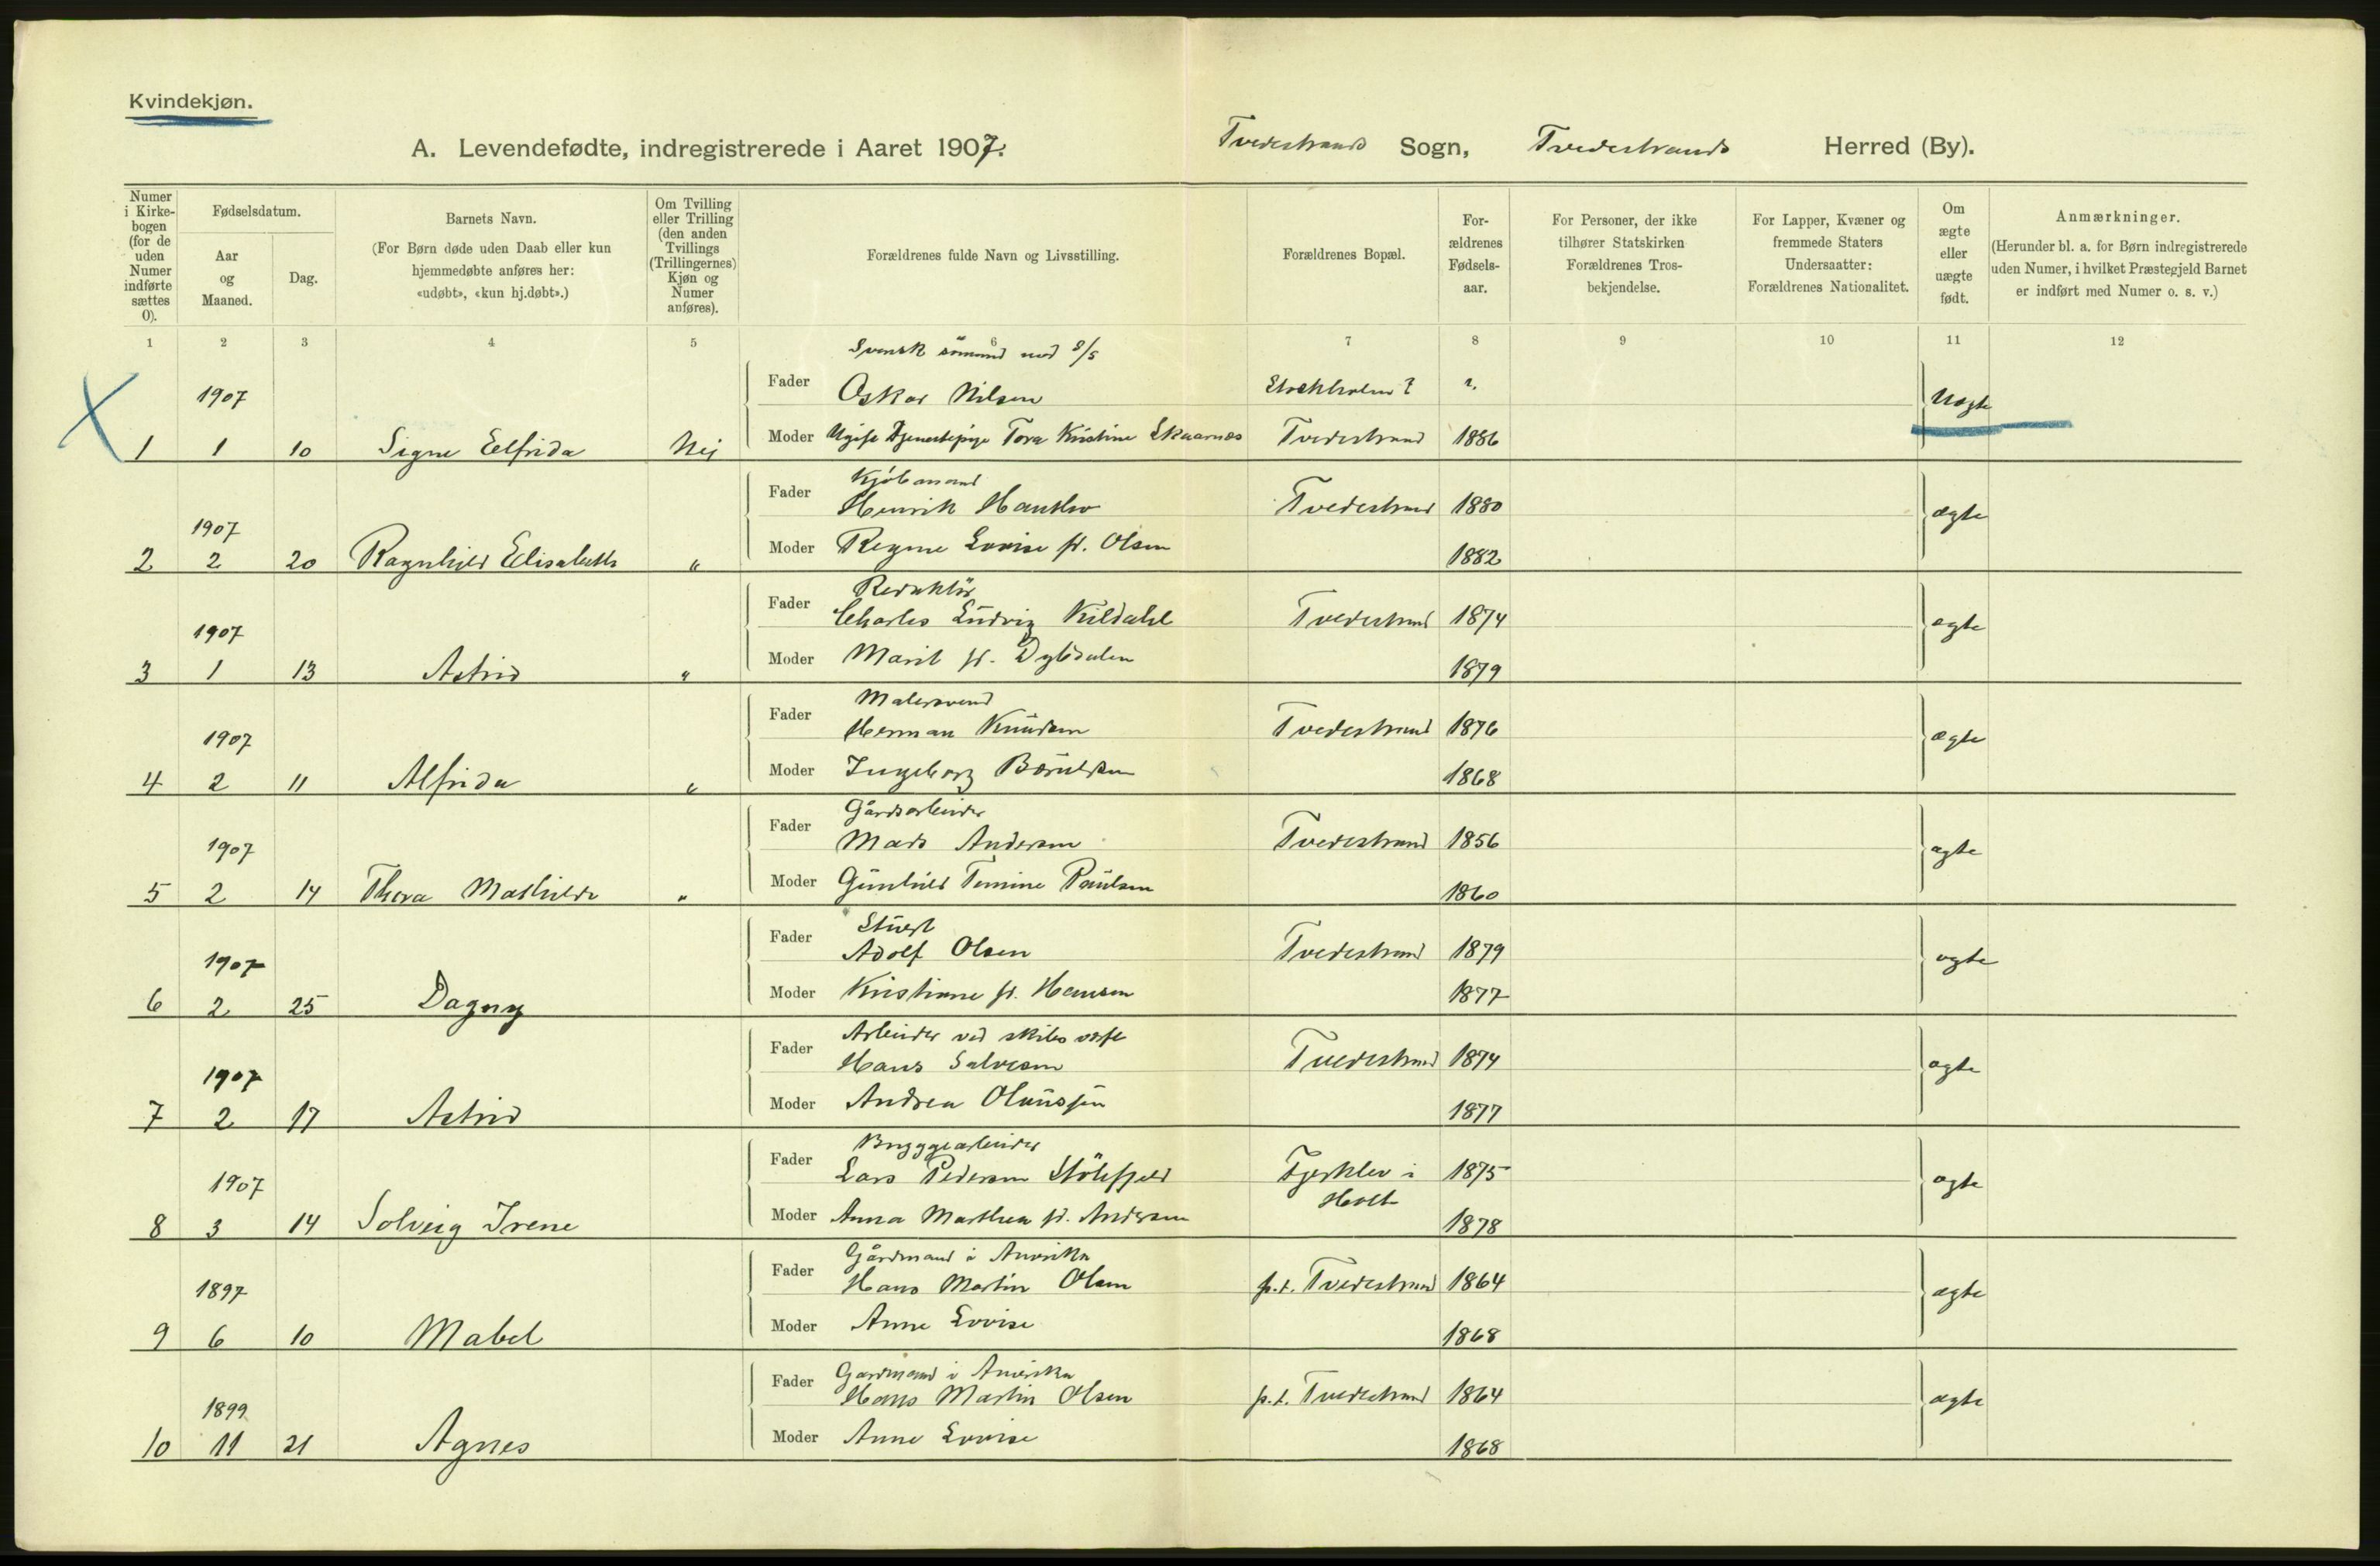 Kvindekjøn.
A. Levendefødte, indregistrerede i Aaret 1907. Tvedestrand Sogn, Tvedestrands Herred (By).
Numer i Kirkebogen (for de uden Numer indførte sættes 0).
Fødselsdatum.
Aar og Maaned.
Dag.
Barnets Navn.
(For Børn døde uden Daab eller kun hjemmedøbte anføres her: «udøbt», «kun hj.døbt».)
Om Tvilling eller Trilling (den anden Tvillings (Trillingernes) Kjøn og Numer anføres).
Forældrenes fulde Navn og Livsstilling.
Forældrenes Bopæl.
Forældrenes Fødselsaar.
For Personer, der ikke tilhører Statskirken Forældrenes Trosbekjendelse.
For Lapper, Kvæner og fremmede Staters Undersaatter: Forældrenes Nationalitet.
Om ægte eller uægte født.
Anmærkninger.
(Herunder bl. a. for Børn indregistrerede uden Numer, i hvilket Præstegjeld Barnet er indført med Numer o. s. v.)
1 2 3 4 5 6 7 8 9 10 11 12
Svensk sömand 8/5
1907 Fader Oskar Nilsen Stockholm? ?. Uægte
1 1 10 Signe Elfrida Nei Moder Ugift Tjenestepige Tora Kristine Skaarnes Tvedestrand 1886
Kjöbmand
1907 Fader Henrik Tvedestrand 1880 ægte
2 2 20 Ragnhild Elisabeth " Moder Regine Lovise f. Olsen 1882
Redaktör
1907 Fader Charles Ludvig Kildahl Tvedestrand 1874 ægte
3 1 13 Astrid " Moder Marit f. 1879
Malersvend
1907 Fader Herman Knudsen Tvedestrand 1876 ægte
4 2 11 Alfrida " Moder Ingeborg 1868
Gårdsarbeider
1907 Fader Mads Andersen Tvedestrand 1856 ægte
5 2 14 Thora Mathilde " Moder Gunhild Tomine Paulsen 1860
Stuert
1907 Fader Adolf Olsen Tvedestrand 1879 ægte
6 2 25 Dagny Moder Kristiane f. Hansen 1877
Arbeider ved skibsværft
1907 Fader Hans Salvesen Tvedestrand 1874 ægte
7 2 17 Astrid Moder Andrea 1877
Bryggearbeider
1907 Fader Lars Pedersen Fjerklev i Holt 1875 ægte
8 3 14 Solveig Irene Moder Anna Marthea f. Andersen 1878
Gårdmand i Amerika
1897 Fader Hans Martin Olsen p.t. Tvedestrand 1864 ægte
9 6 10 Mabel Moder Anne Lovise 1868
Gardmand i Amerika
1899 Fader Hans Martin Olsen p.t. Tvedestrand 1864 ægte
10 11 21 Agnes Moder Anne Lovise 1868